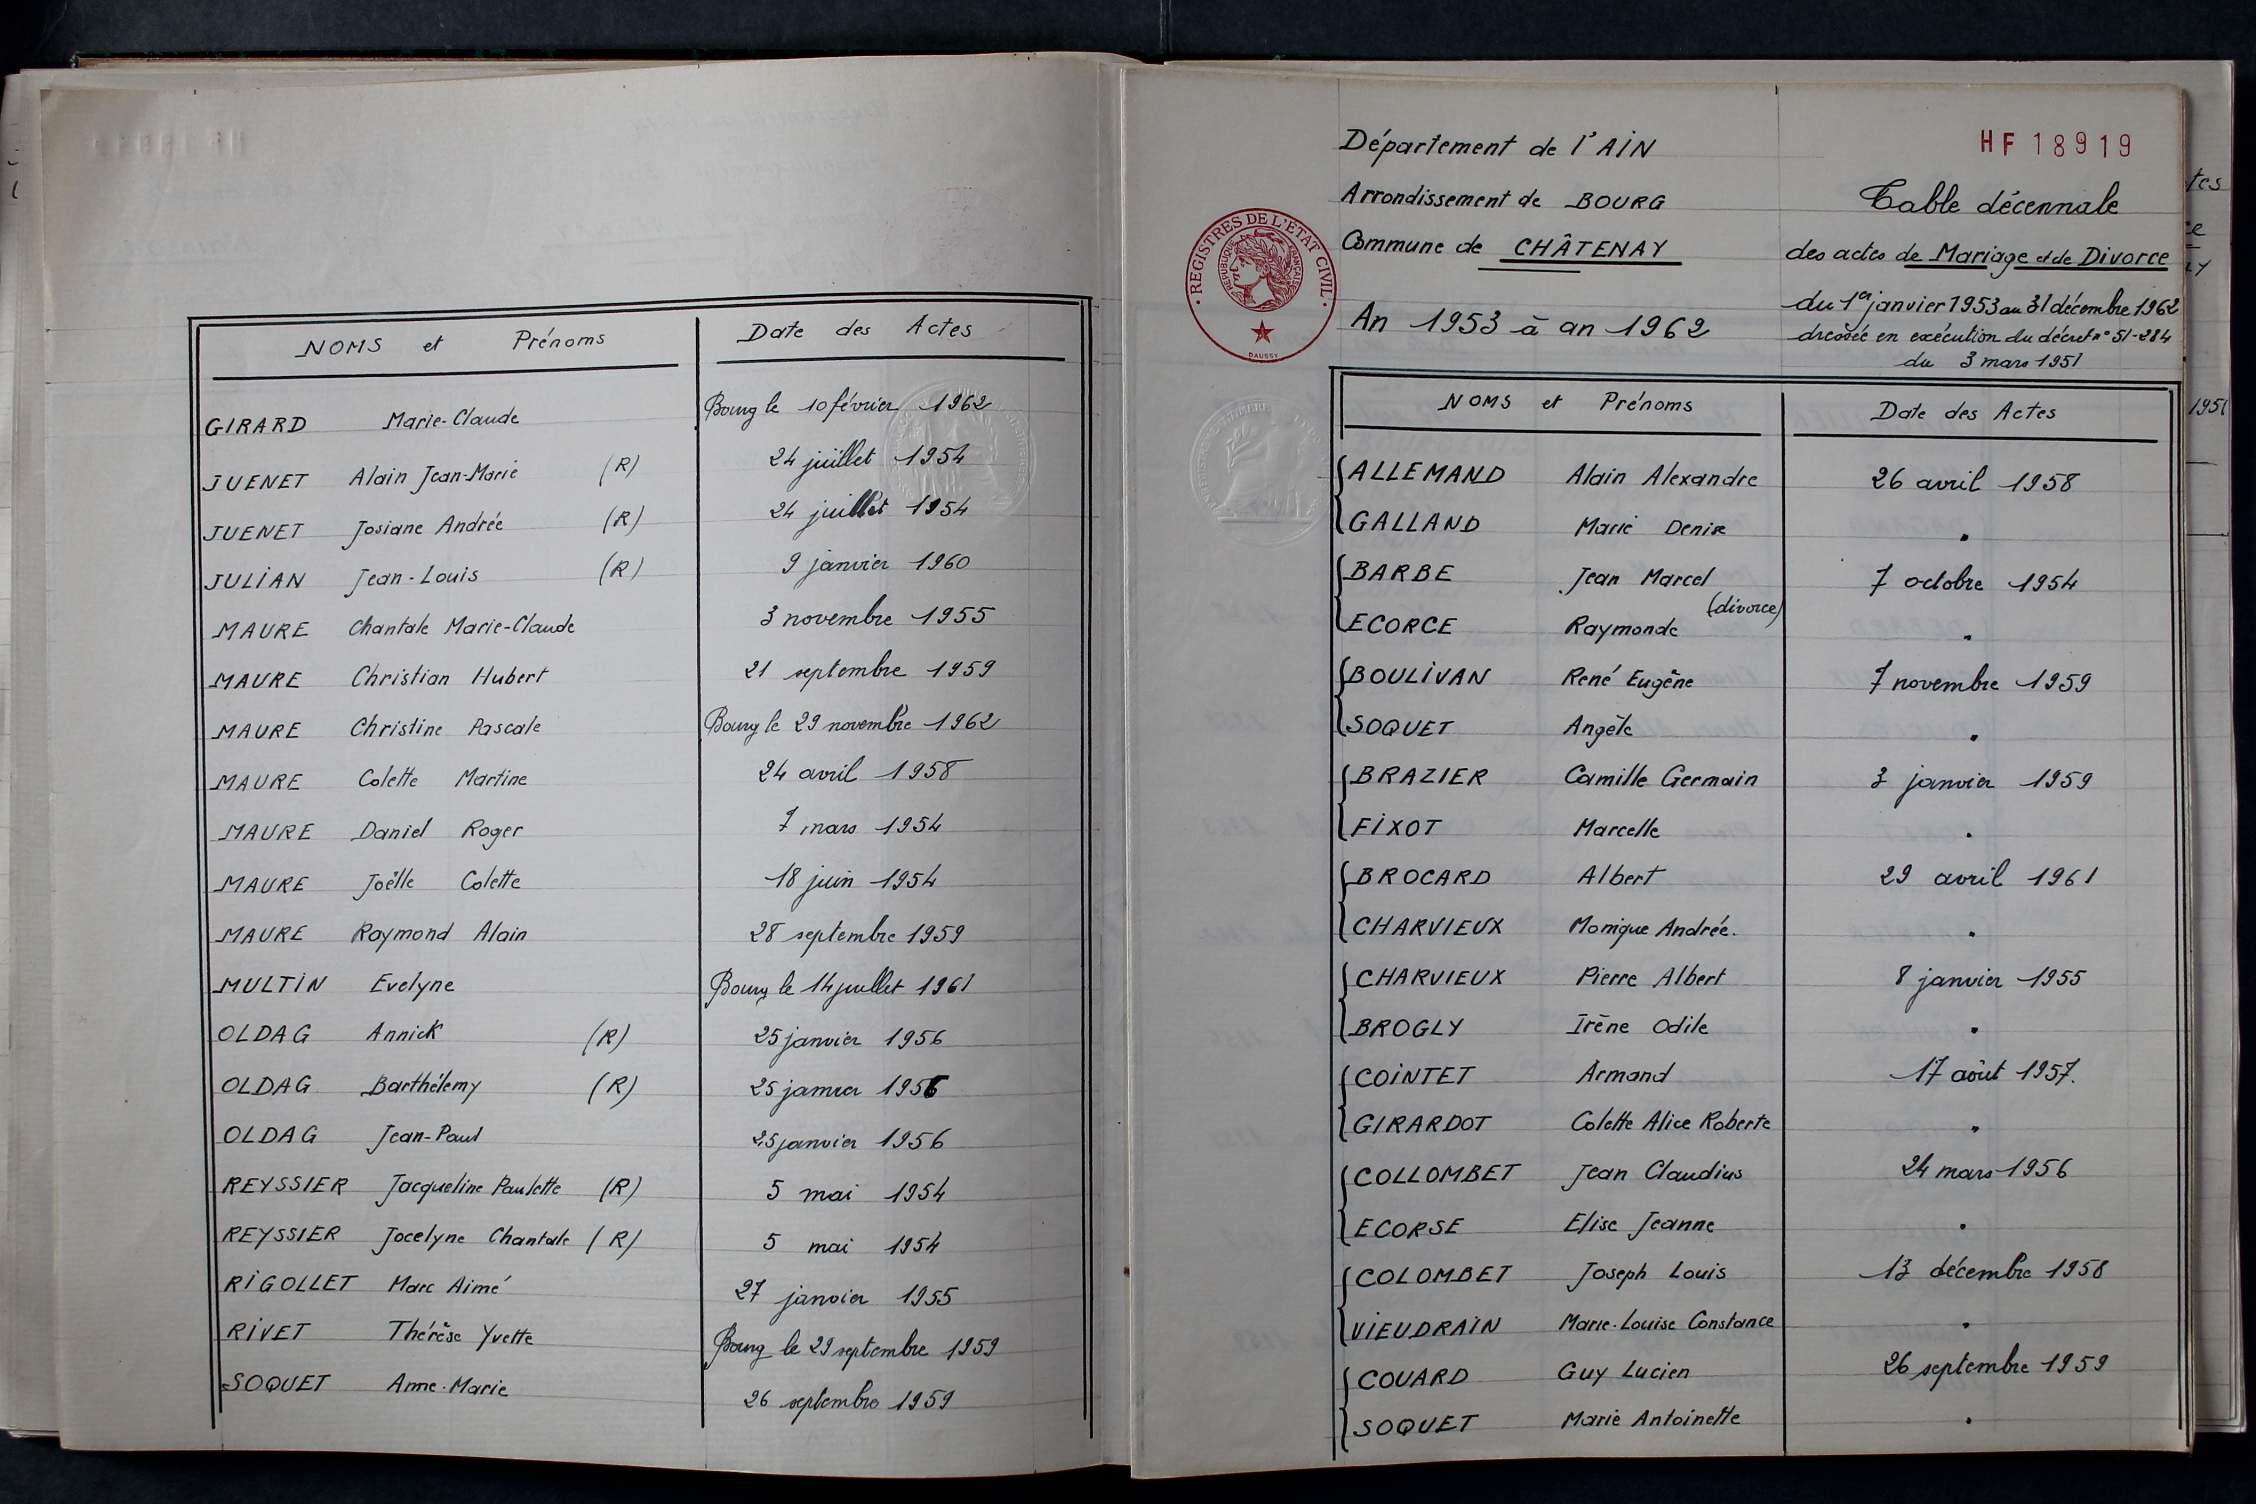 NOMS et Prénoms Date des Actes
GIRARD Marie-Claude Bourg le 10 février 1962
JUENET Alain Jean-Marie (R) 24 juillet 1954
JUENET Josiane Andrée (R) 24 juillet 1954
JULIAN Jean-Louis (R) 9 janvier 1960
MAURE Chantale Marie-Claude 3 novembre 1955
MAURE Christian Hubert 21 septembre 1959
MAURE Christine Pascale Bourg le 29 novembre 1962
MAURE Colette Martine 24 avril 1958
MAURE Daniel Roger 7 mars 1954
MAURE Joëlle Colette 18 juin 1954
MAURE Raymond Alain 28 septembre 1959
MULTIN Evelyne Bourg le 14 juillet 1961
OLDAG Annick (R) 25 janvier 1956
OLDAG Barthélemy (R) 25 janvier 1956
OLDAG Jean-Paul 25 janvier 1956
REYSSIER Jacqueline Paulette (R) 5 mai 1954
REYSSIER Jocelyne Chantale (R) 5 mai 1954
RIGOLLET Marc Aimé 27 janvier 1955
RIVET Thérèse Yvette Bourg le 29 septembre 1959
SOQUET Anne-Marie 26 septembre 1959
Département de l'AIN
Arrondissement de BOURG
Commune de CHÂTENAY
An 1953 à an 1962
REGISTRES DE L'ETAT CIVIL
REPUBLIQUE FRANÇAISE
DAUSSY
HF 18919
Table décennale
des actes de Mariage et de Divorce
du 1er janvier 1953 au 31 décembre 1962
dressée en exécution du décret n° 51-284
du 3 mars 1951
NOMS et Prénoms Date des Actes
ALLEMAND Alain Alexandre 26 avril 1958
GALLAND Marie Denise "
BARBE Jean Marcel 7 octobre 1954
(divorce)
ECORCE Raymonde "
BOULIVAN René Eugène 7 novembre 1959
SOQUET Angèle "
BRAZIER Camille Germain 3 janvier 1959
FIXOT Marcelle "
BROCARD Albert 29 avril 1961
CHARVIEUX Monique Andrée. "
CHARVIEUX Pierre Albert 8 janvier 1955
BROGLY Irène Odile "
COINTET Armand 17 août 1957.
GIRARDOT Colette Alice Roberte "
COLLOMBET Jean Claudius 24 mars 1956
ECORSE Elise Jeanne "
COLOMBET Joseph Louis 13 décembre 1958
VIEUDRAIN Marie-Louise Constance "
COUARD Guy Lucien 26 septembre 1959
SOQUET Marie Antoinette "
1951